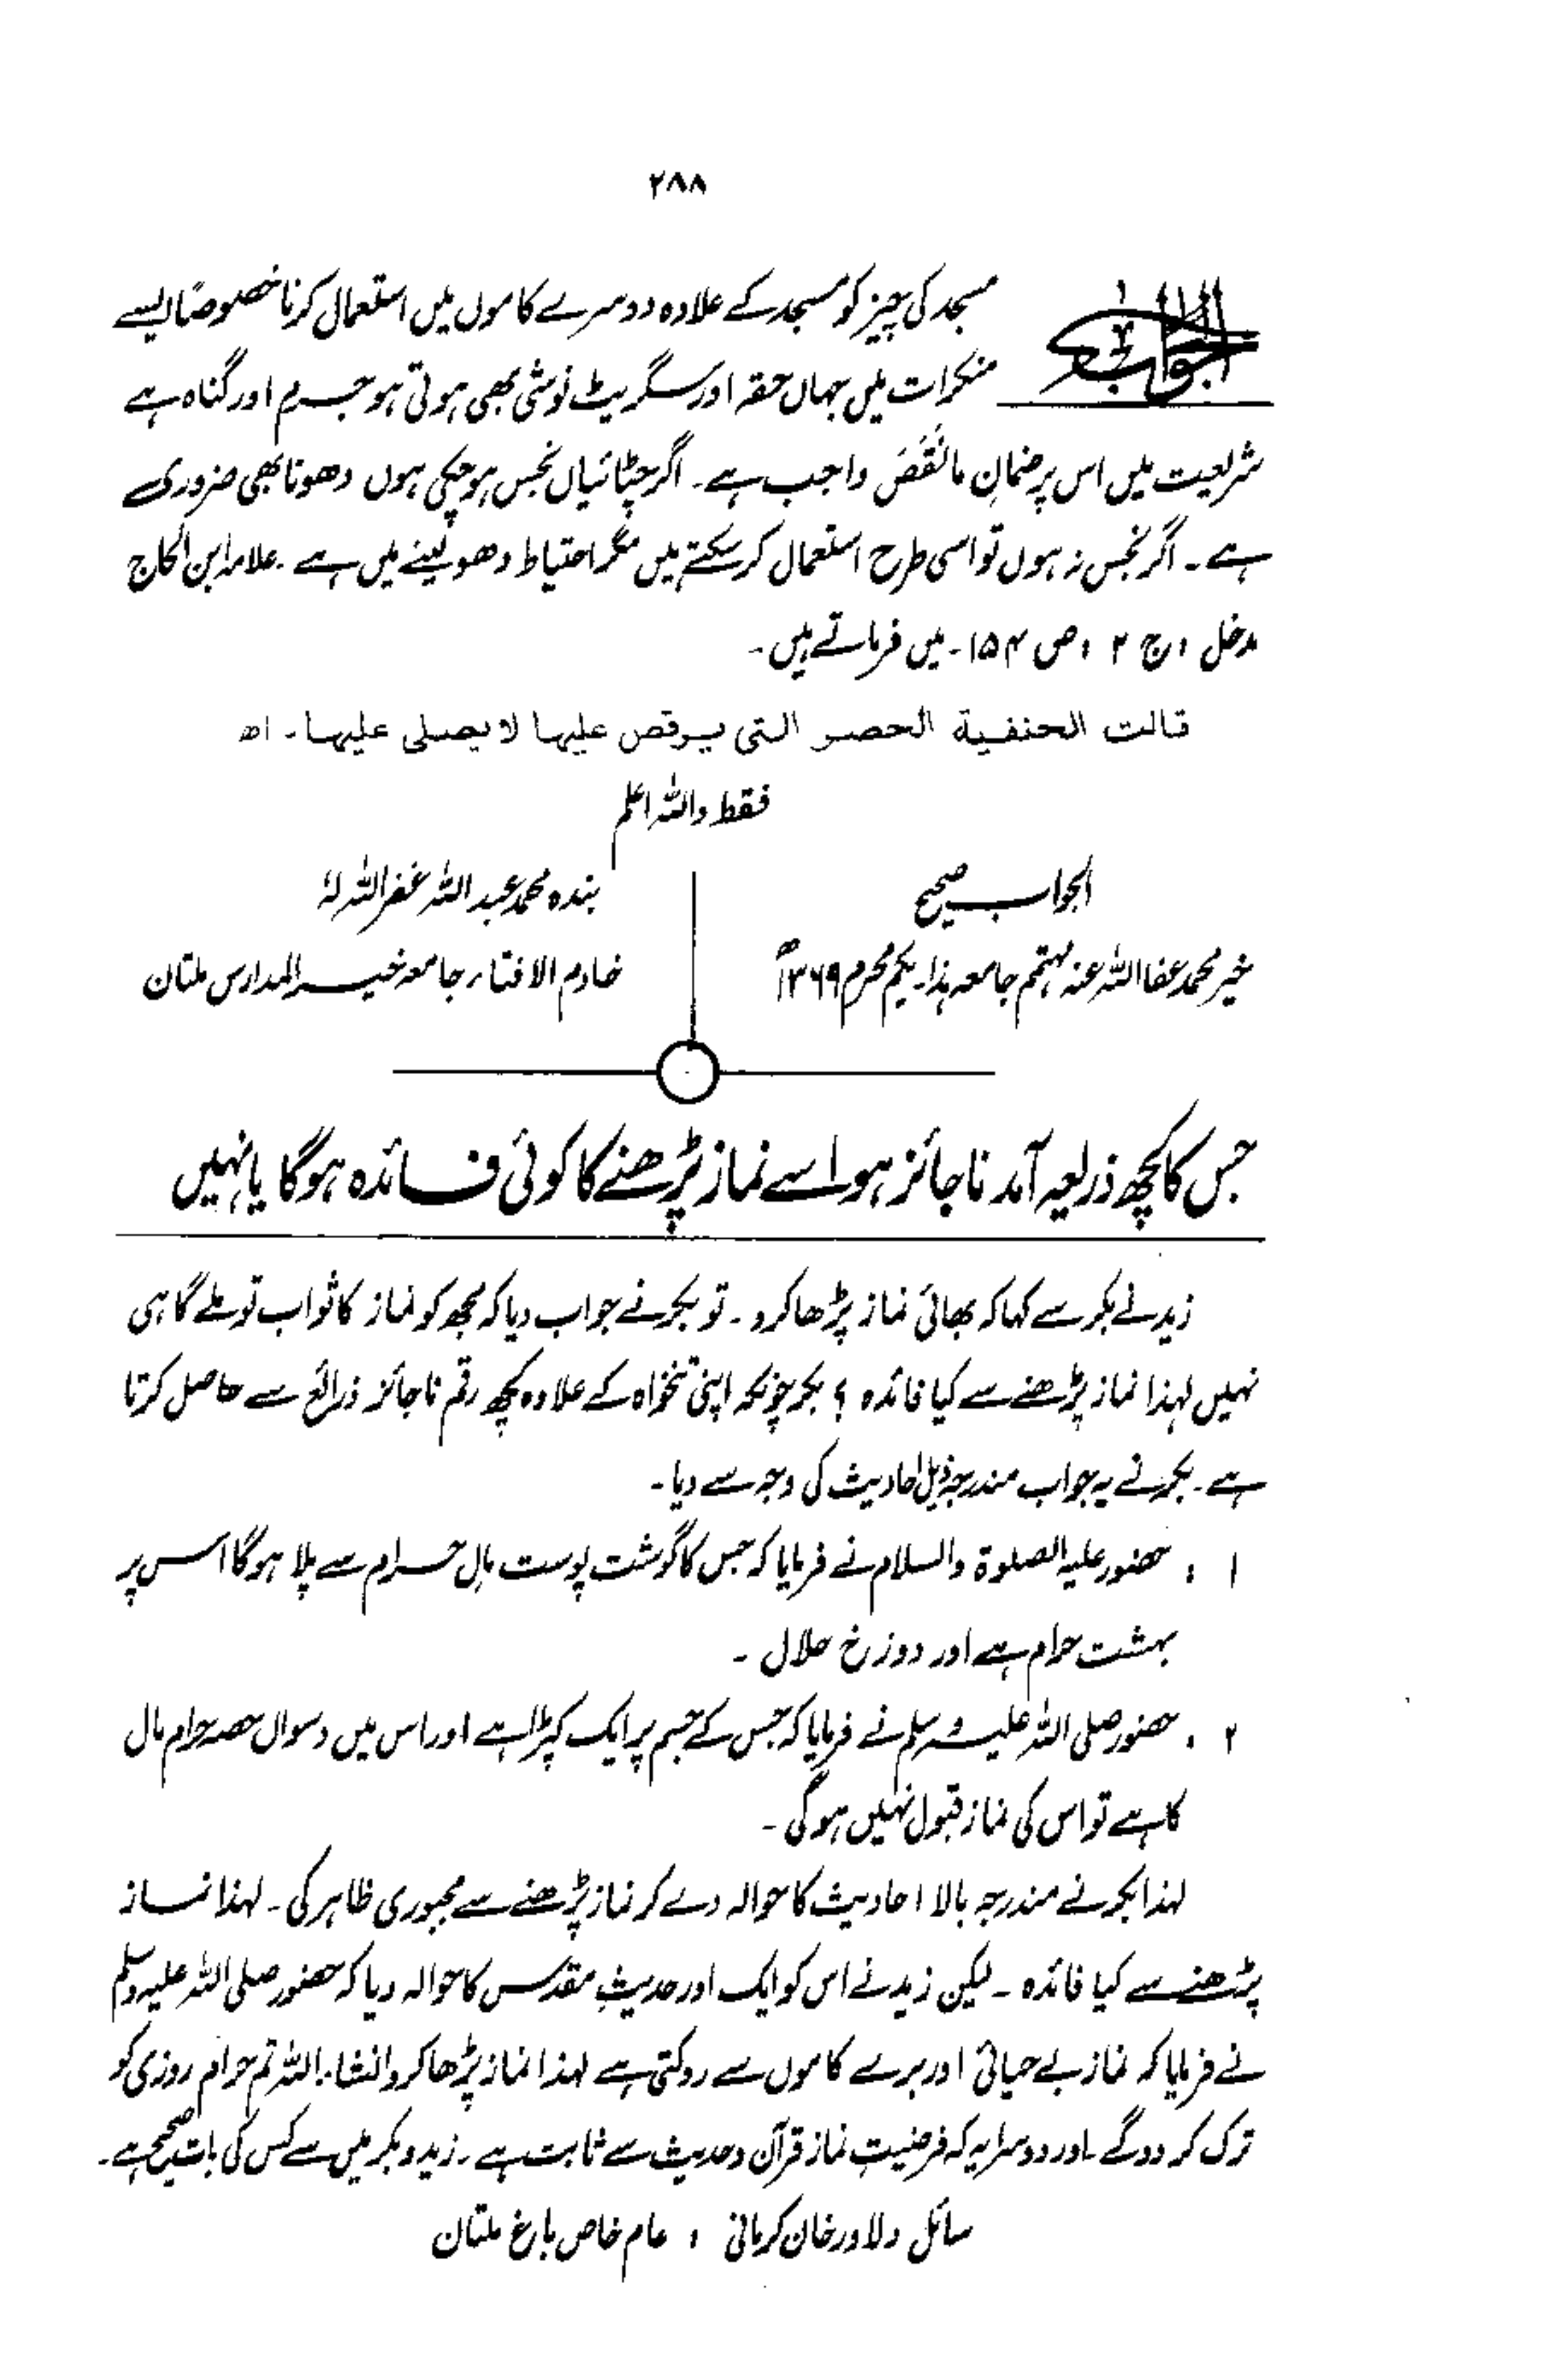 ۲۸۸
الجواب
مسجد کی چیز کو مسجد کے علاوہ دوسرے کاموں میں استعمال کرنا خصوصًا ایسے
منکرات میں جہاں حقہ اور سگریٹ نوشی بھی ہوتی ہو جرم اور گناہ ہے
شریعت میں اس پر ضمانِ مانَقَصَ واجب ہے۔ اگر چٹائیاں نجس ہو چکی ہوں دھونا بھی ضروری
ہے۔ اگر نجس نہ ہوں تو اسی طرح استعمال کر سکتے ہیں مگر احتیاط دھو لینے میں ہے۔ علامہ ابن الحاج
مدخل ، ج ۲ ، ص ۱۵۴۔ میں فرماتے ہیں۔
قالت الحنفية الحصر التى يرقص عليها لا يصلى عليها۔ اھ
فقط واللہ اعلم
الجواب صحیح
خیر محمد عفا اللہ عنہ مہتمم جامعہ ہذا۔ یکم محرم ۱۳۶۹ھ
بندہ محمد عبد اللہ غفر اللہ لہٗ
خادم الافتاء جامعہ خیر المدارس ملتان
جس کا کچھ ذریعہ آمد ناجائز ہو اسے نماز پڑھنے کا کوئی فائدہ ہوگا یا نہیں
زید نے بکر سے کہا کہ بھائی نماز پڑھا کرو۔ تو بکر نے جواب دیا کہ مجھ کو نماز کا ثواب تو ملے گا ہی
نہیں لہذا نماز پڑھنے سے کیا فائدہ ؟ بکر چونکہ اپنی تنخواہ کے علاوہ کچھ رقم ناجائز ذرائع سے حاصل کرتا
ہے۔ بکر نے یہ جواب مندرجہ ذیل احادیث کی وجہ سے دیا۔
۱ : حضور علیہ الصلوۃ والسلام نے فرمایا کہ جس کا گوشت پوست مالِ حرام سے پلا ہوگا اس پر
بہشت حرام ہے اور دوزخ حلال ۔
۲ : حضور صلی اللہ علیہ وسلم نے فرمایا کہ جس کے جسم پر ایک کپڑا ہے اور اس میں دسواں حصہ حرام مال
کا ہے تو اس کی نماز قبول نہیں ہوگی ۔
لہذا بکر نے مندرجہ بالا احادیث کا حوالہ دے کر نماز پڑھنے سے مجبوری ظاہر کی۔ لہذا نماز
پڑھنے سے کیا فائدہ ۔ لیکن زید نے اس کو ایک اور حدیثِ مقدس کا حوالہ دیا کہ حضور صلی اللہ علیہ وسلم
نے فرمایا کہ نماز بے حیائی اور برے کاموں سے روکتی ہے لہذا نماز پڑھا کرو انشاء اللہ تم حرام روزی کو
ترک کر دو گے ۔اور دوسرا یہ کہ فرضیتِ نماز قرآن وحدیث سے ثابت ہے ۔ زید و بکر میں سے کس کی بات صحیح ہے۔
سائل دلاور خان کرمانی ، عام خاص باغ ملتان